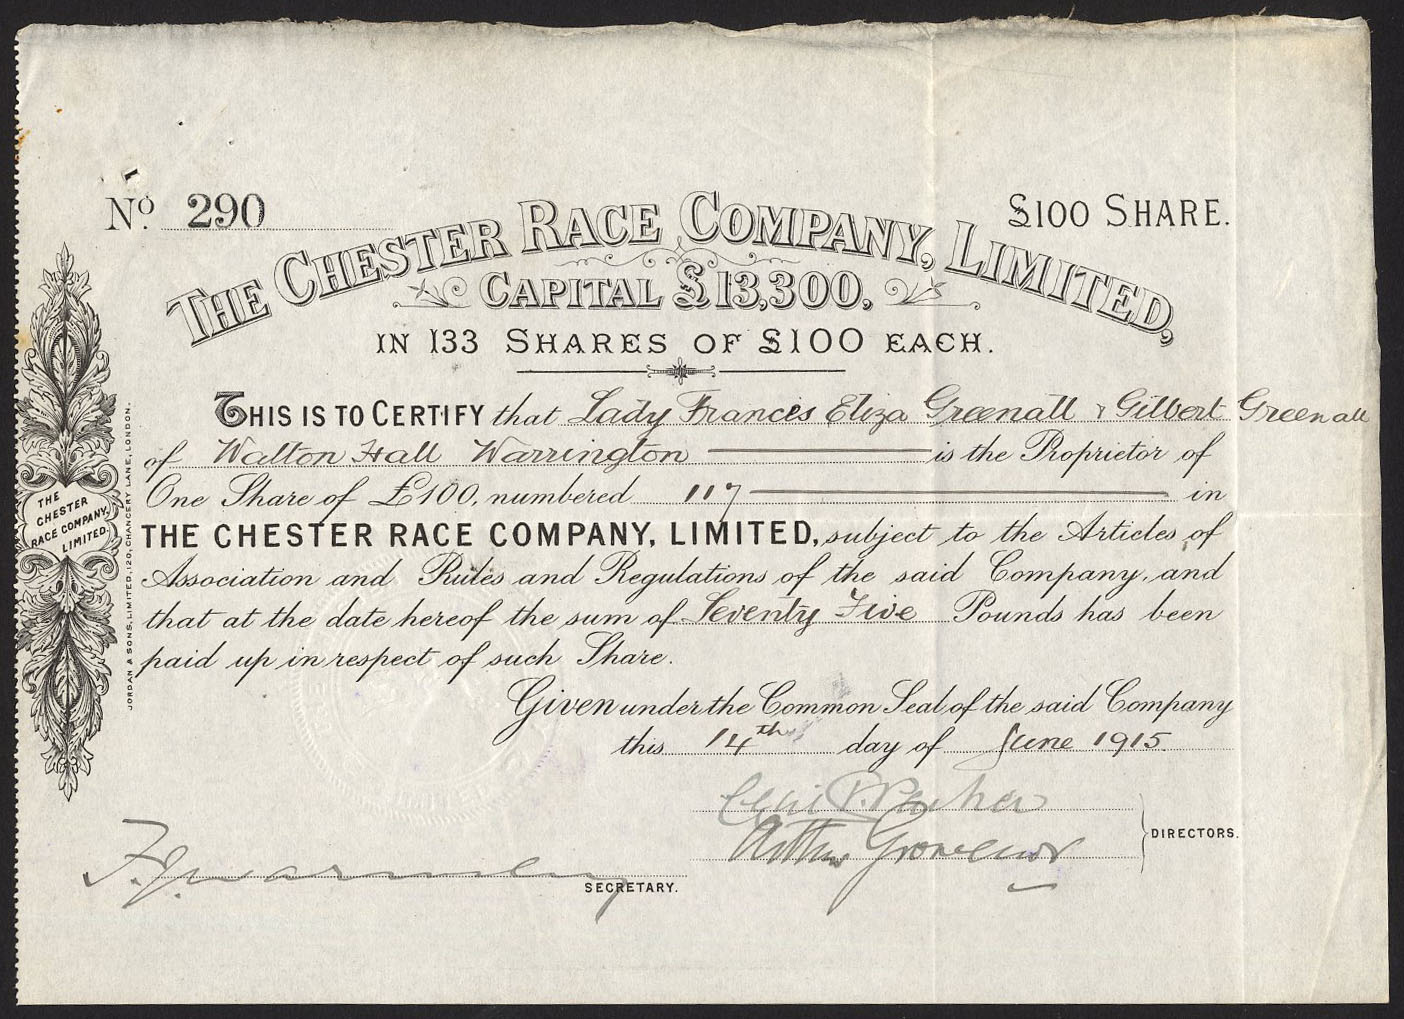 No. 290
£100 SHARE.
THE CHESTER RACE COMPANY, LIMITED,
CAPITAL £13,300,
IN 133 SHARES OF £100 EACH.
THIS IS TO CERTIFY that Lady Frances Eliza Greenall & Gilbert Greenall
of Walton Hall Warrington is the Proprietor of
One Share of £100, numbered 117 in
THE CHESTER RACE COMPANY, LIMITED, subject to the Articles of
Association and Rules and Regulations of the said Company, and
that at the date hereof the sum of Seventy Five Pounds has been
paid up in respect of such Share.
Given under the Common Seal of the said Company
this 14th day of June 1915.
Arthur Grosvenor
DIRECTORS.
SECRETARY.
THE
CHESTER
RACE COMPANY,
LIMITED.
JORDAN & SONS, LIMITED, 120, CHANCERY LANE, LONDON.